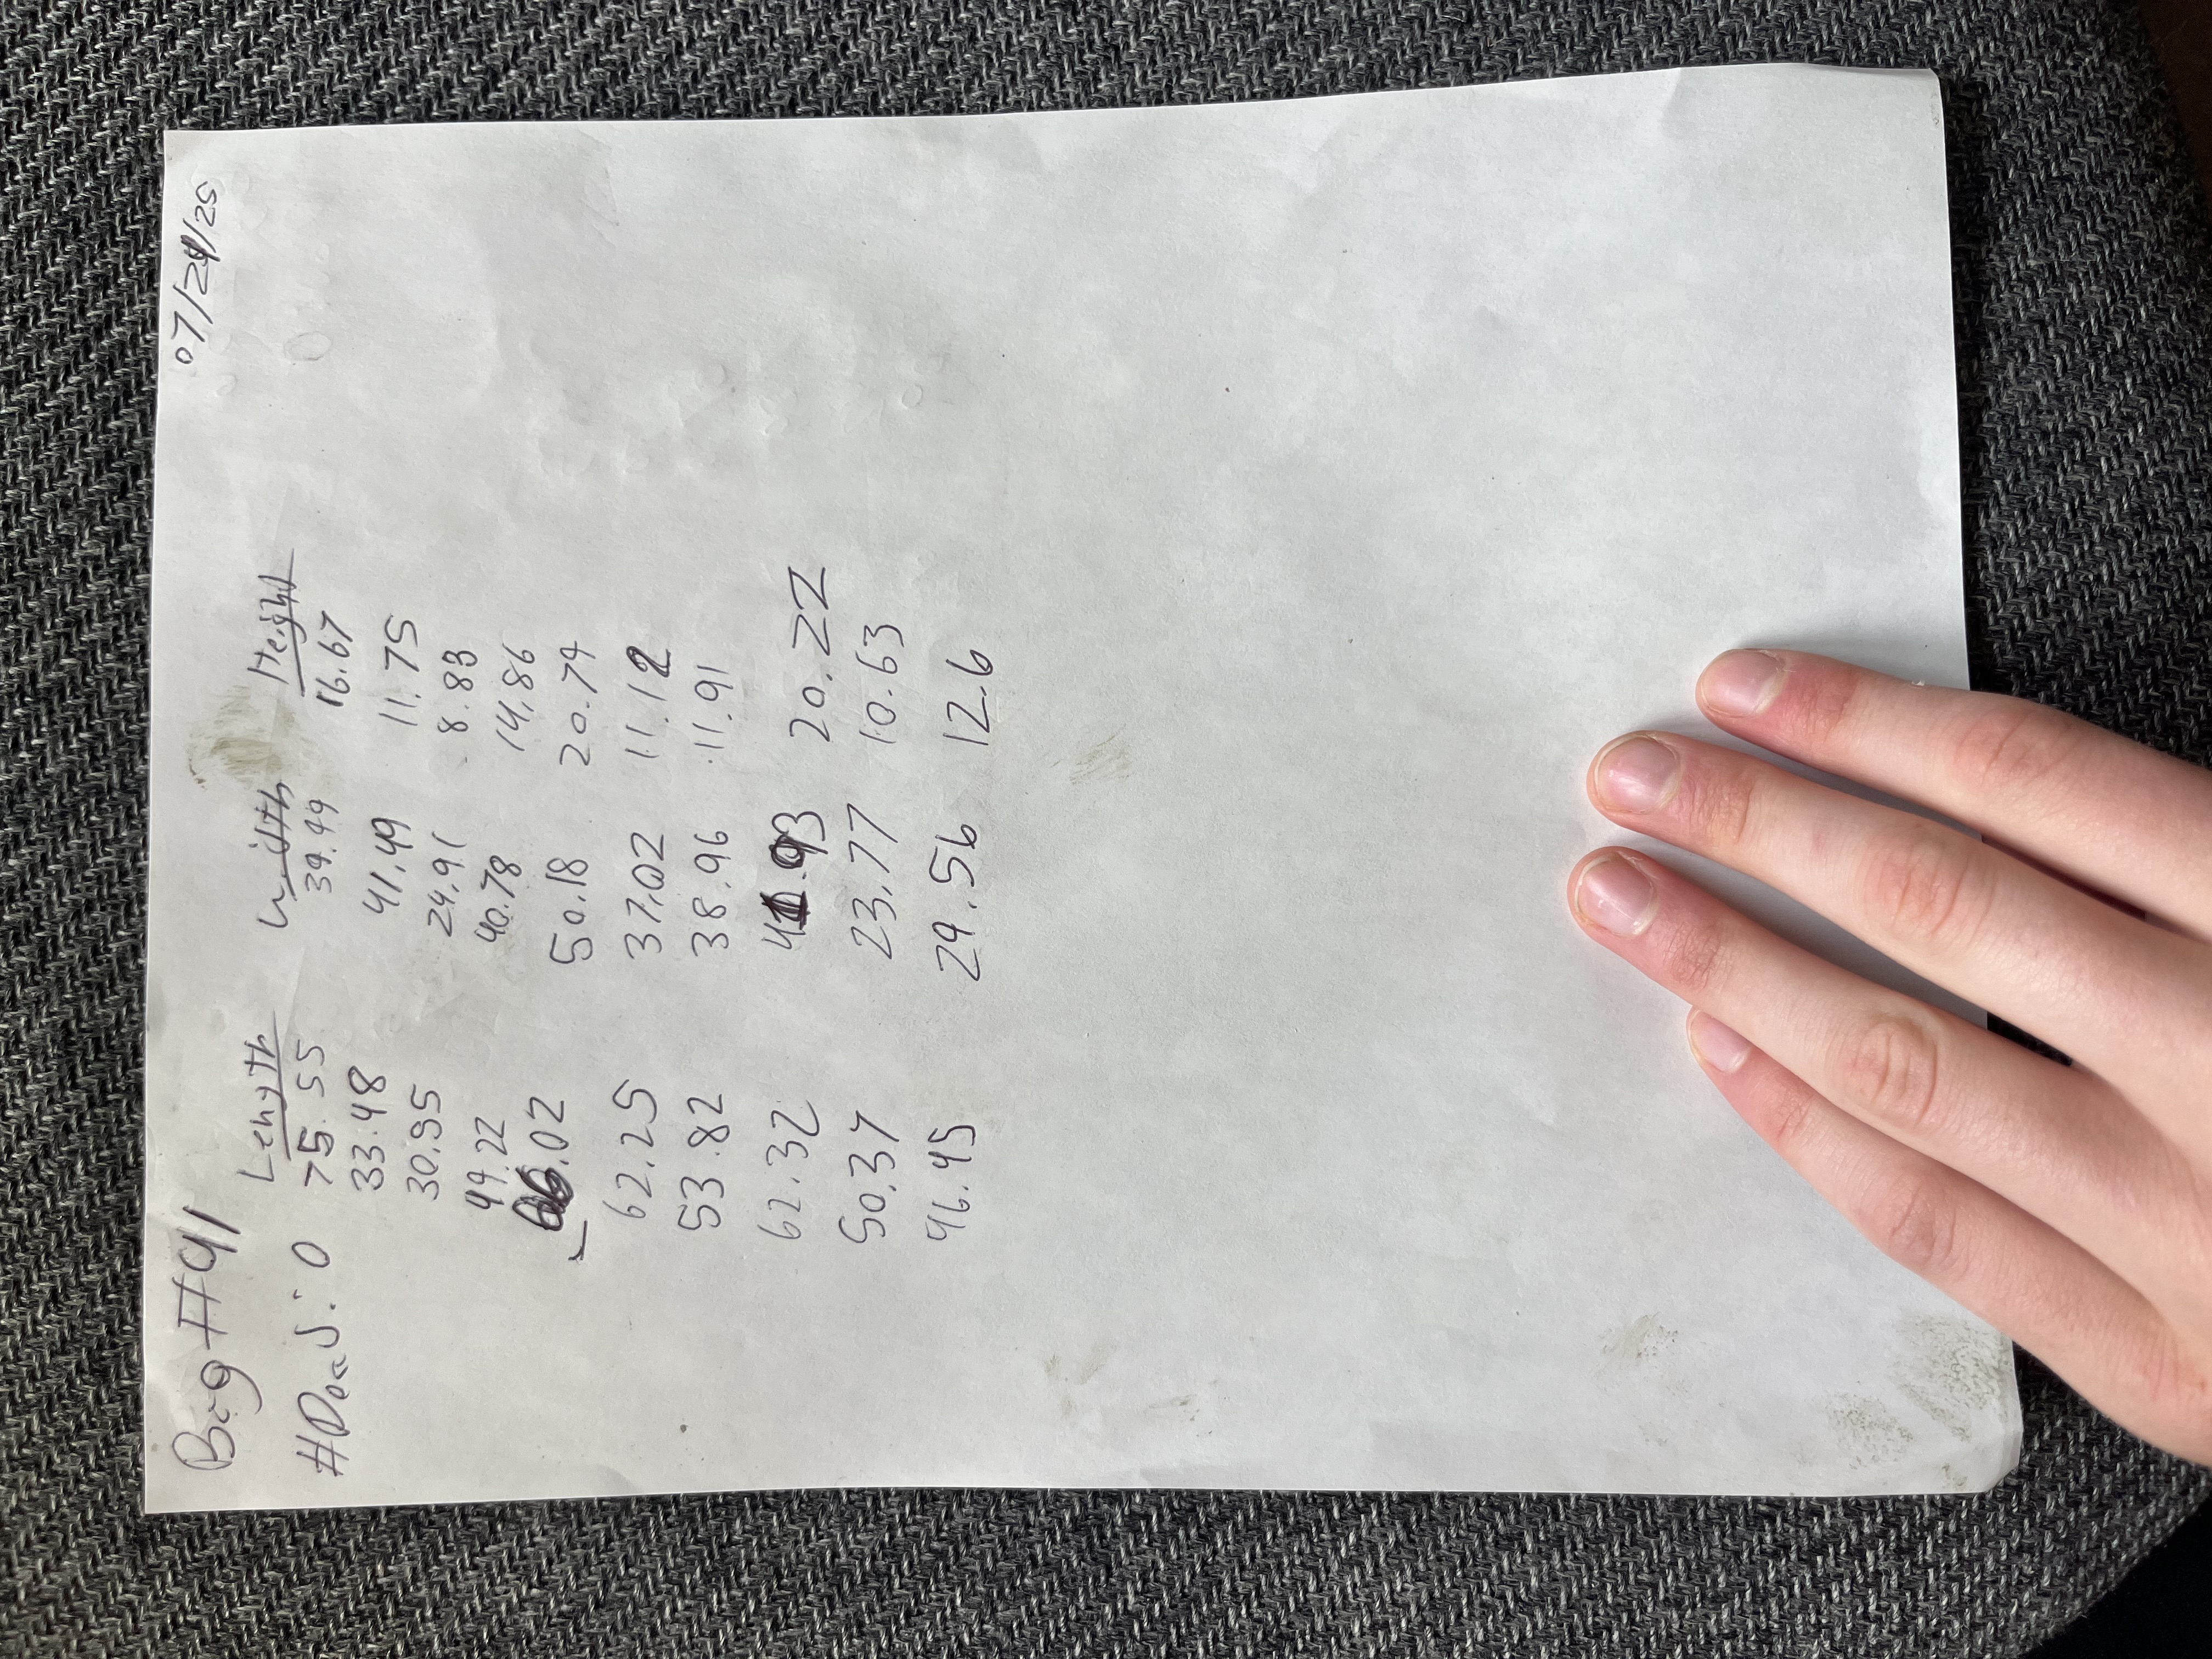 Bag #41 07/24/25
Length Width Height
#Dead: 0 75.55 39.49 16.67
33.48 41.49 11.75
30.95 24.91 8.83
49.22 40.78 14.86
66.02 50.18 20.74
62.25 37.02 11.12
53.82 38.96 11.91
62.32 41.93 20.22
50.37 23.77 10.63
46.45 29.56 12.6